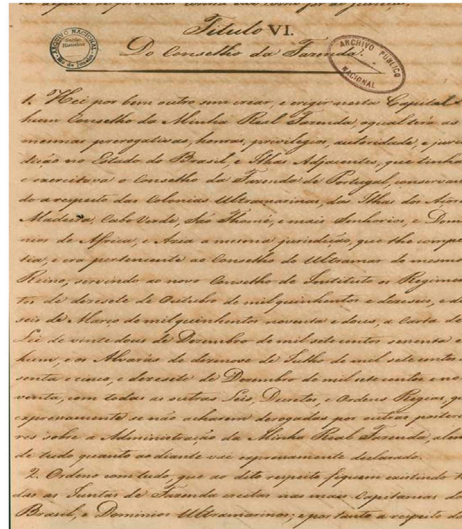 Titulo VI.
Do Conselho da Fazenda.
ARCHIVO NACIONAL
ARCHIVO PUBLICO
NACIONAL
1. Hei por bem outro sim crear, e erigir nesta Capital
hum Conselho da Minha Real Fazenda, o qual terá as
mesmas prerogativas, honras, privilegios, autoridade, e juris
dicção no Estado do Brasil, e Ilhas Adjacentes, que tinha
e exercitava o Conselho da Fazenda de Portugal, conservan
do a respeito das Colonias Ultramarinas, das Ilhas dos Açores
Madeira, Cabo Verde, São Thomé, e mais Senhorios, e Domi
nios de Africa, e Asia a mesma jurisdicção, que lhe compe
tia, e era pertencente ao Conselho do Ultramar do mesmo
Reino, servindo ao novo Conselho de Instituto os Regimen
tos de dezesete de Outubro de mil quinhentos e dezeseis, e de
seis de Março de mil quinhentos noventa e dous, a Carta de
Lei de vinte dous de Dezembro de mil sete centos sessenta e
hum, e os Alvarás de de Julho de mil sete centos
senta e cinco, e dezesete de Dezembro de mil sete centos e no
venta, com todas as outras Leis, Decretos, e Ordens Regias, que
expressamente se não acharem derogadas por outras posterio
res sobre a Administração da Minha Real Fazenda, alem
de tudo quanto ao diante vai expressamente declarado.
2. Ordeno com tudo, que ao dito respeito fiquem existindo to
das as Juntas de Fazenda erectas nas mais Capitanias do
Brasil, e Dominios Ultramarinos, e por tanto a respeito da